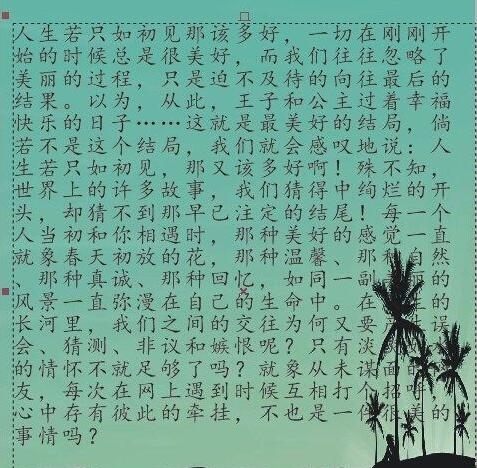 人生若只如初见那该多好，一切在刚刚开
始的时候总是很美好，而我们往往忽略了
美丽的过程，只是迫不及待的向往最后的
结果。以为，从此，王子和公主过着幸福
快乐的日子……这就是最美好的结局，倘
若不是这个结局，我们就会感叹地说：人
生若只如初见，那又该多好啊！殊不知，
世界上的许多故事，我们猜得中绚烂的开
头，却猜不到那早已注定的结尾！每一个
人当初和你相遇时，那种美好的感觉一直
就象春天初放的花，那种温馨、那种自然
、那种真诚、那种回忆，如同一副 丽的
风景一直弥漫在自己的生命中。在 生的
长河里，我们之间的交往为何又要 生误
会、猜测、非议和嫉恨呢？只有淡
的情怀不就足够了吗？就象从未谋面的
友，每次在网上遇到时候互相打个招
心中存有彼此的牵挂，不也是一件很美的
事情吗？